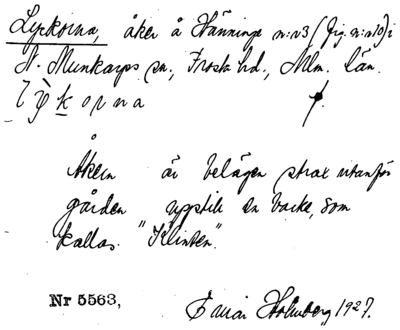 Lyckorna, åker å Hänninge n:o3 (fig. n:o10) i
N. Munkarps sn., Frosta hd., Mlm. län.
Åkern är belägen strax utanför
gården upptill en backe, som
kallas "Klinten".
Nr 5563,
Maria Holmberg 1927.